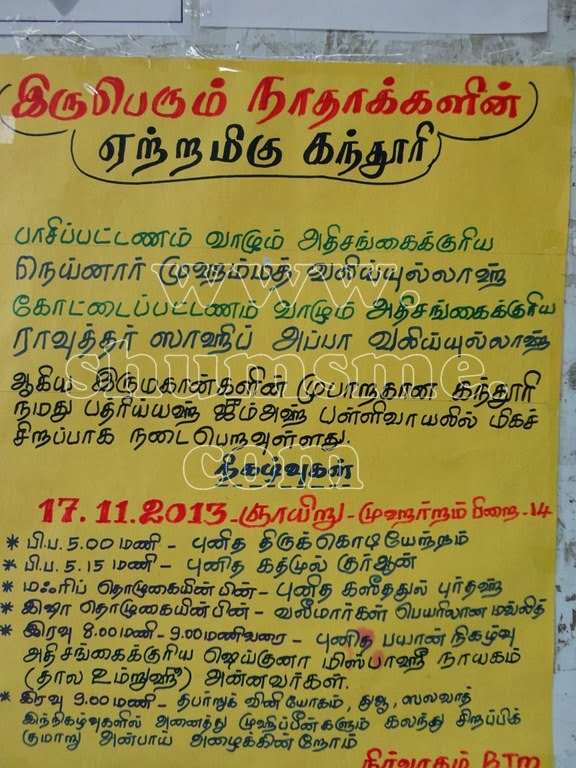 இருபெரும் நாதாக்களின்
ஏற்றமிகு கந்தூரி
பாசிப்பட்டணம் வாழும் அதிசங்கைக்குரிய
நெய்னார் முஹம்மத் வலிய்யுல்லாஹ்
கோட்டைப்பட்டணம் வாழும் அதிசங்கைக்குரிய
ராவுத்தர் ஸாஹிப் அப்பா வலிய்யுல்லாஹ்
ஆகிய இருமகான்களின் முபாறகான கந்தூரி
நமது பத்ரிய்யஹ் ஜீம்அஹ் பள்ளிவாயலில் மிகச்
சிறப்பாக நடைபெறவுள்ளது.
நிகழ்வுகள்
17.11.2013-ஞாயிறு-முஹர்றம் பிறை-14
* பி.ப.5.00 மணி - புனித திருக்கொடியேற்றம்
* பி.ப. 5.15 மணி - புனித கத்முல் குர்ஆன்
* மஃரிப் தொழுகையின்பின் - புனித கஸீததுல் புர்தஹ்
* இஷா தொழுகையின்பின் - வலீமார்கள் பெயரிலான மவ்லித்
* இரவு 8.00மணி - 9.00மணிவரை - புனித பயான் நிகழ்வு
அதிசங்கைக்குரிய ஷெய்குனா மிஸ்பாஹீ நாயகம்
(தால உம்றுஹீ) அன்னவர்கள்.
* இரவு 9.00மணி - தபர்றுக் வினியோகம், துஆ, ஸலவாத்
இந்நிகழ்வுகளில் அனைத்து முஹிப்பீன்களும் கலந்து சிறப்பிக்
குமாறு அன்பாய் அழைக்கின்றோம்
நிர்வாகம் BJM
www.
shumsme.
com